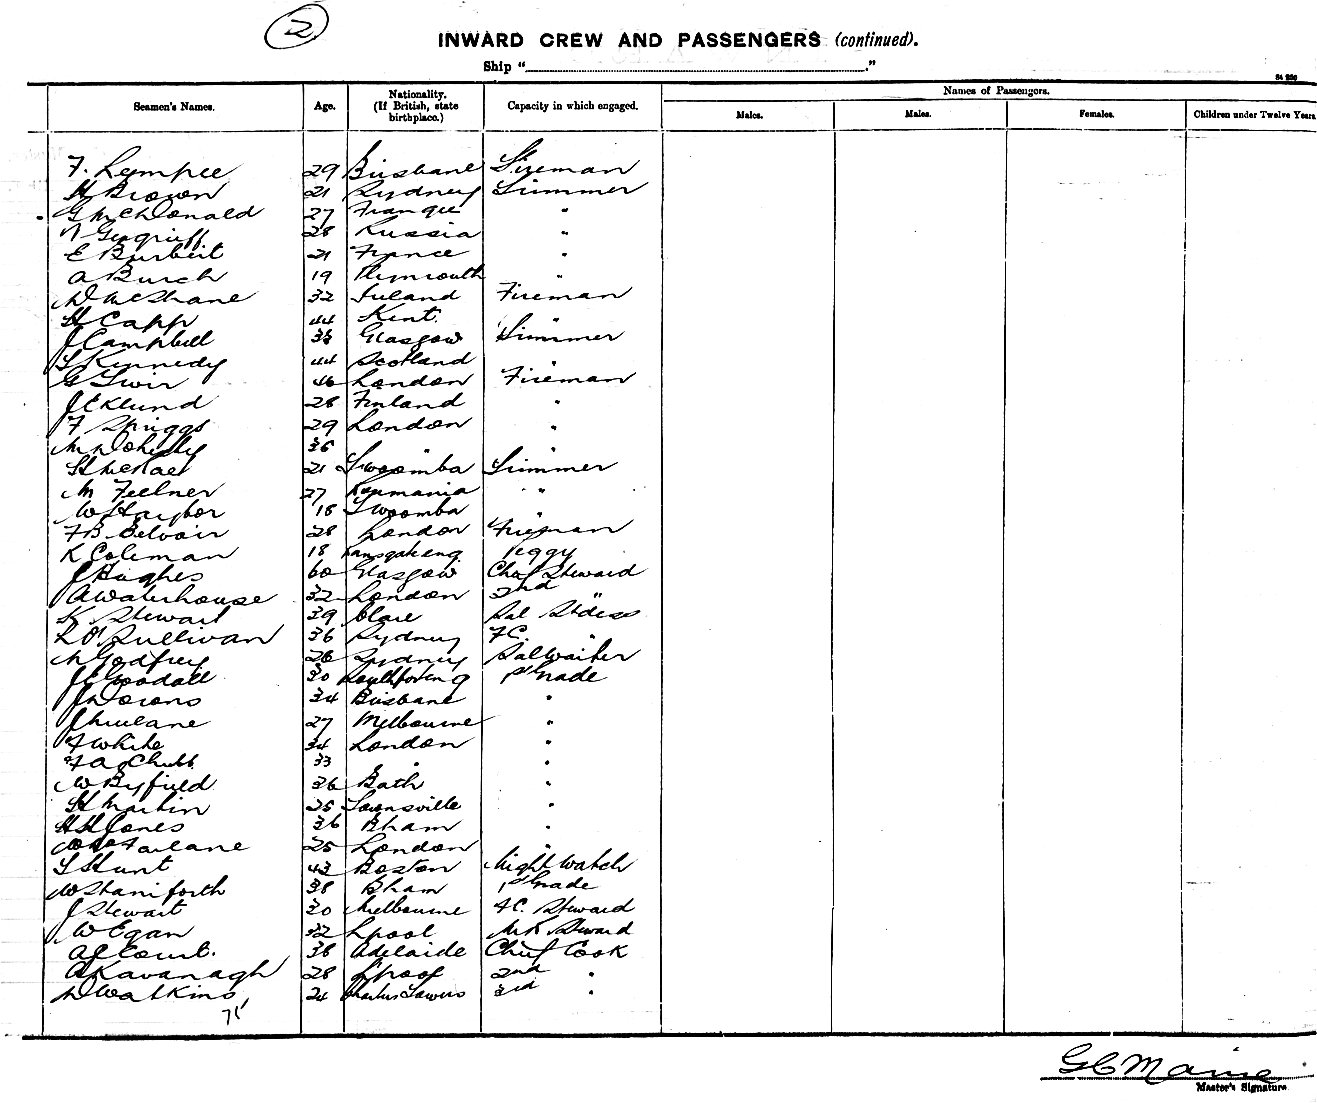 2
INWARD CREW AND PASSENGERS (continued).
Ship " "
Seamen's Names. Age. Nationality. (If British, state birthplace.) Capacity in which engaged. Names of Passengers.
Males. Males. Females. Children under Twelve Years
F. 29 Brisbane Fireman
H Brown 21 Sydney Trimmer
G McDonald 27 "
28 Russia "
E Burbeit 21 France "
A Burch 19 Plymouth "
D McShane 32 Ireland Fireman
H Capp 44 Kent. "
J Campbell 33 Glasgow Trimmer
T Kennedy 44 Scotland "
G 46 London Fireman
J Eklund 28 Finland "
F Spriggs 29 London "
M Doherty 36 " "
H 21 Twoomba Trimmer
M Fellner 27 Roumania " "
W Haybor 18 Twoomba "
F B Belvoir 28 London Fireman
K Coleman 18 Peggy
J Hughes 60 Glasgow Chief Steward
A Waterhouse 32 London 2nd "
K Stewart 39 Clare Sal Stdess
L O'Sullivan 36 Sydney F.C. "
N Godfrey 26 Sydney Sal Waiter
J C Goodall 30 1st Grade
J Downs 34 Brisbane "
J 27 Melbourne "
F White 34 London "
F A Chubb 33 " "
W Byfield 36 Bath "
H Martin 25 Townsville "
H H Jones 36 Bham "
McFarlane 25 London "
T Hunt 43 Boston Night Watch
W Staniforth 38 Bham 1st Grade
J Stewart 30 Melbourne F.C. Steward
W Egan 32 Lpool Steward
A E Court. 38 Adelaide Chief Cook
A Kavanagh 28 Lpool 2nd "
D Watkins 24 Charters Towers 3rd "
G C Maine
Master's Signature.